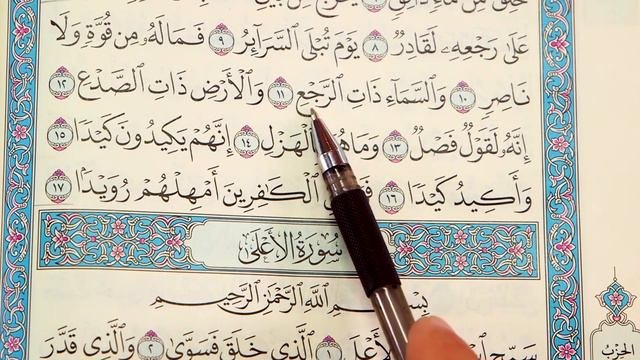 خُلِقَ مِن مَّآءٍ دَافِقٍ
عَلَىٰ رَجْعِهِۦ لَقَادِرٌ ۝٨ يَوْمَ تُبْلَى ٱلسَّرَآئِرُ ۝٩ فَمَا لَهُۥ مِن قُوَّةٍ وَلَا
نَاصِرٍ ۝١٠ وَٱلسَّمَآءِ ذَاتِ ٱلرَّجْعِ ۝١١ وَٱلْأَرْضِ ذَاتِ ٱلصَّدْعِ ۝١٢
إِنَّهُۥ لَقَوْلٌ فَصْلٌ ۝١٣ وَمَا هُوَ بِٱلْهَزْلِ ۝١٤ إِنَّهُمْ يَكِيدُونَ كَيْدًا ۝١٥
وَأَكِيدُ كَيْدًا ۝١٦ ٱلْكَٰفِرِينَ أَمْهِلْهُمْ رُوَيْدًۢا ۝١٧
سُورَةُ ٱلْأَعْلَىٰ
بِسْمِ ٱللَّهِ ٱلرَّحْمَٰنِ ٱلرَّحِيمِ
سَبِّحِ ٱلْأَعْلَى ۝١ ٱلَّذِى خَلَقَ فَسَوَّىٰ ۝٢ وَٱلَّذِى قَدَّرَ
الحِزْب